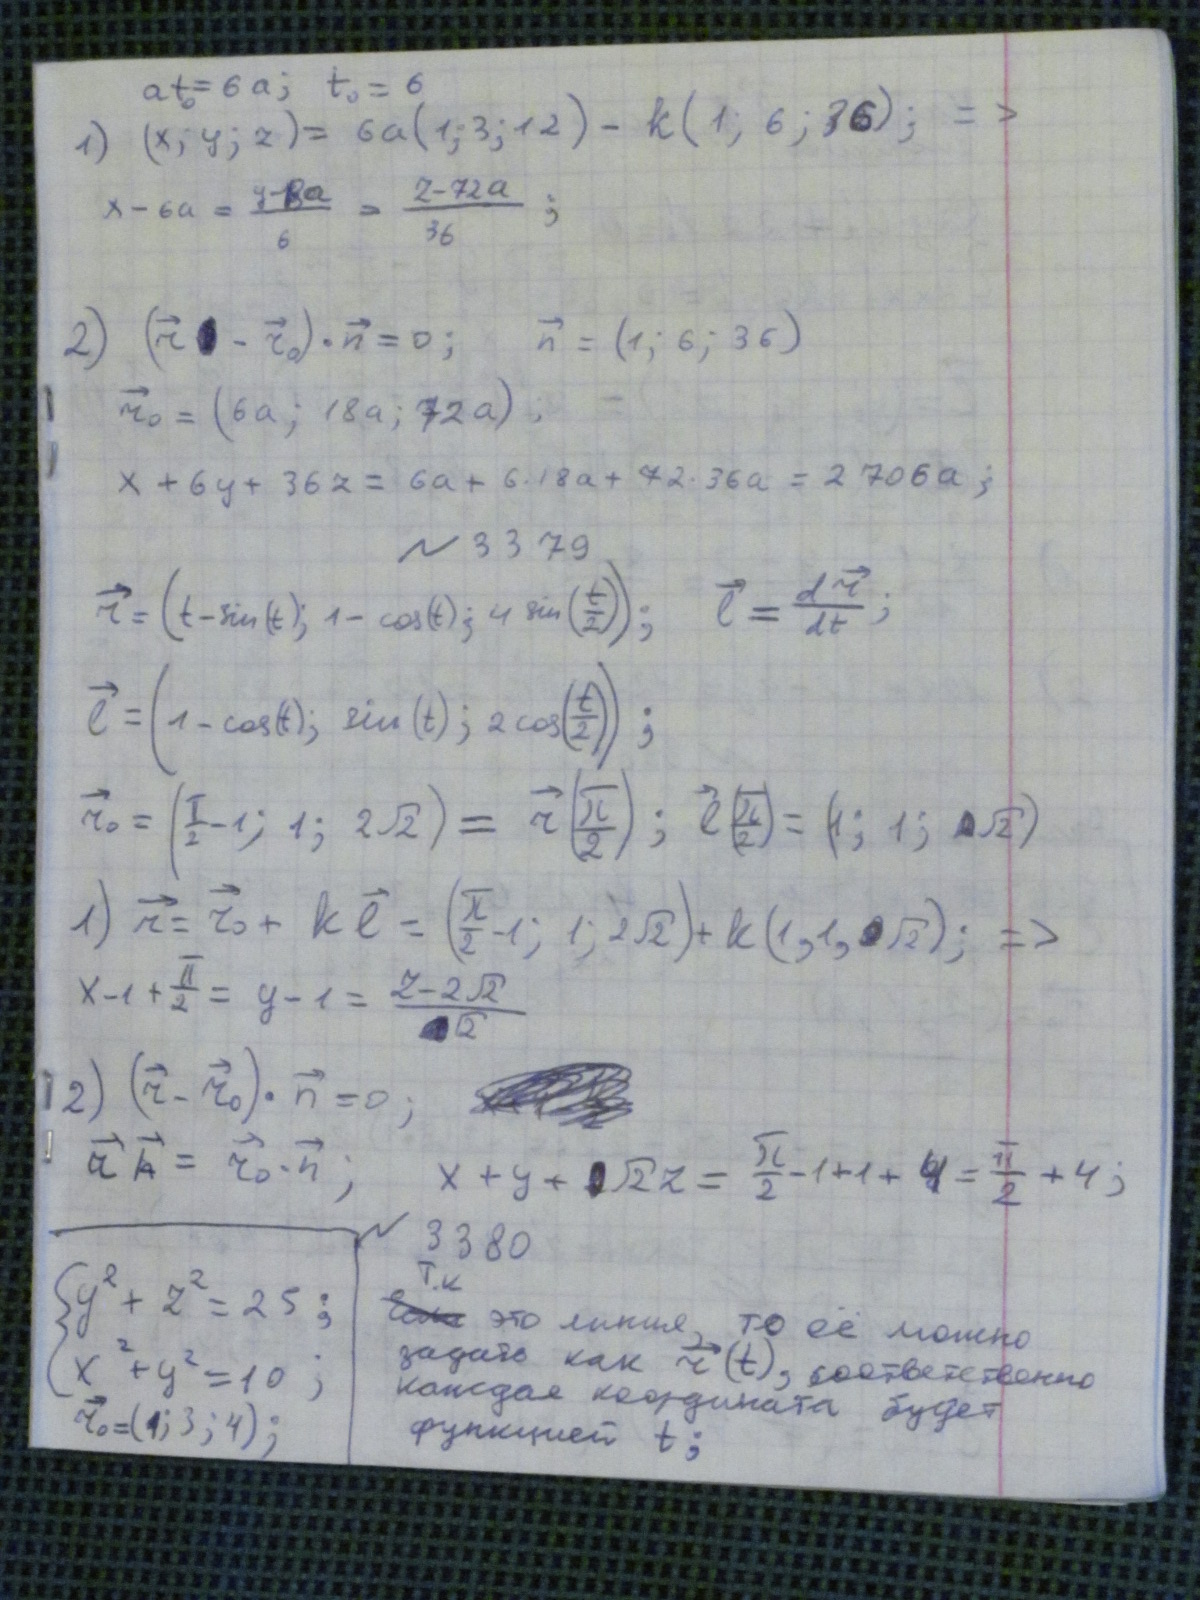 at₀ = 6a; t₀ = 6
1) (x; y; z) = 6a(1; 3; 12) - k(1; 6; 36); =>
x - 6a = (y-18a)/6 = (z-72a)/36;
2) (r⃗ - r⃗₀)·n⃗ = 0; n⃗ = (1; 6; 36)
r⃗₀ = (6a; 18a; 72a);
x + 6y + 36z = 6a + 6·18a + 72·36a = 2706a;
~ 3379
r⃗ = (t - sin(t); 1 - cos(t); 4 sin(t/2)); l⃗ = dr⃗/dt;
l⃗ = (1 - cos(t); sin(t); 2cos(t/2));
r⃗₀ = (π/2 - 1; 1; 2√2) = r⃗(π/2); l⃗(π/2) = (1; 1; √2)
1) r⃗ = r⃗₀ + k l⃗ = (π/2 - 1; 1; 2√2) + k(1,1,√2); =>
x - 1 + π/2 = y - 1 = (z-2√2)/√2
2) (r⃗ - r⃗₀)·n⃗ = 0;
r⃗ n⃗ = r⃗₀·n⃗; x + y + √2 z = π/2 - 1 + 1 + 4 = π/2 + 4;
~ 3380
{y² + z² = 25;
x² + y² = 10;
r⃗₀ = (1; 3; 4);
Т.к
это линия, то её можно
задать как r⃗(t), соответственно
каждая координата будет
функцией t;